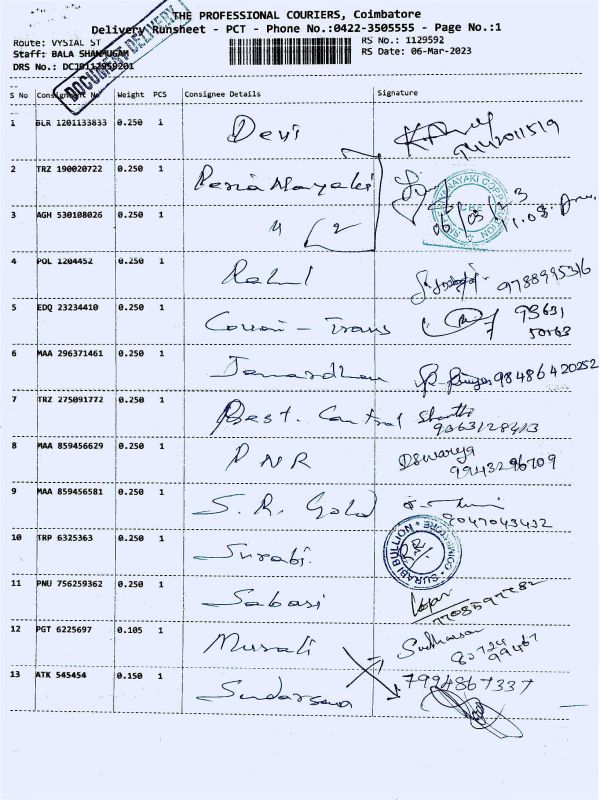 THE PROFESSIONAL COURIERS, Coimbatore
Delivery Runsheet - PCT - Phone No.:0422-3505555 - Page No.:1
Route: VYSIAL ST
RS No.: 1129592
Staff: BALA SHANMUGAM
RS Date: 06-Mar-2023
DRS No.:
DOCUMENT DELIVERY
S No Consignment No Weight PCS Consignee Details Signature
1 BLR 1201133833 0.250 1 Devi
9442011519
2 TRZ 190020722 0.250 1 Peria Nayaki
3 AGH 530108026 0.250 1 " 2
06/03/23
11.03
4 POL 1204452 0.250 1 Rahul
9788995316
5 EDQ 23234410 0.250 1 Couoni - Trans
93631
50163
6 MAA 296371461 0.250 1 Janardhan 98486420252
7 TRZ 275091772 0.250 1 Best. Control Shanthi
9363128413
8 MAA 859456629 0.250 1 P N R Dswarya
9943296709
9 MAA 859456581 0.250 1 S. R. Gold
9047043432
10 TRP 6325363 0.250 1 Surabi.
SURABI BULLION * COIMBATORE *
11 PNU 756259362 0.250 1 Sabasi
12 PGT 6225697 0.105 1 Murali Sudharsan
80724
99467
13 ATK 545454 0.150 1 Sundarsana 7994867337